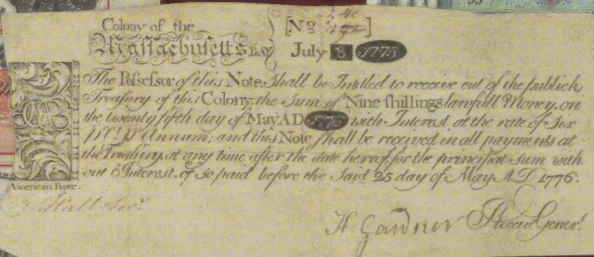 Colony of the [No ]
Massachusetts BAY July 8 1775
The Possessor of this Note shall be Intitled to receive out of the publick
Treasury of this Colony, the Sum of Nine shillings lawfull Money, on
the twenty fifth day of May A D 1775 with Interest at the rate of Six
Pr Ct Pr Annum, and this Note shall be received in all payments at
the Treasury, at any time after the date hereof, for the principal Sum with
out Interest, if so paid before the Said 25 day of May A D 1776.
American Paper.
H. Gardner Receivr Generl.